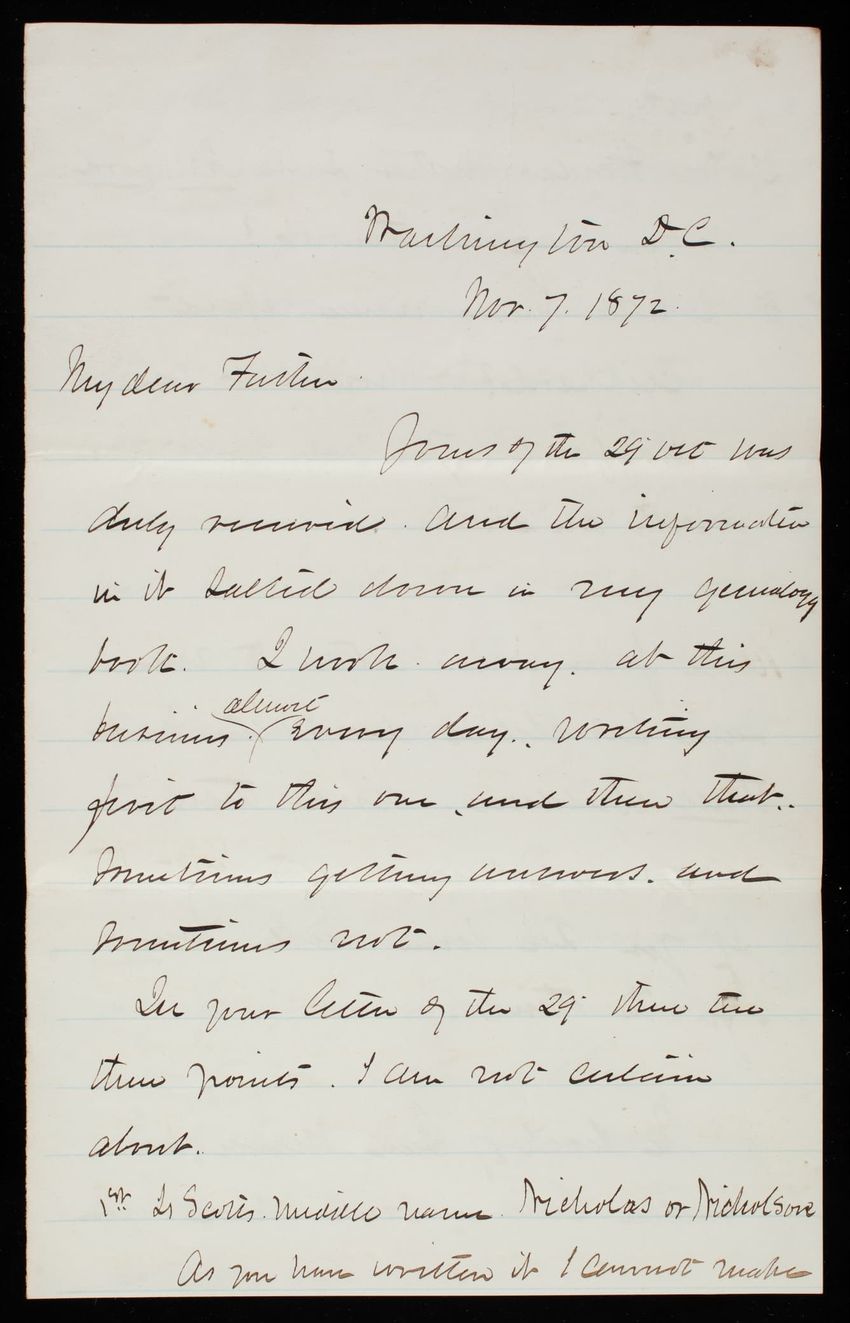 Washington D.C.
Nov. 7. 1872.
My dear Father
Yours of the 29 oct was
duly received. and the information
in it salted down in my genealogy
book. I work away. at this
business. almost Every day. writing
first to this one, and then that.
Sometimes getting answers. and
sometimes not.
In your letter of the 29 there are
three points. I am not certain
about.
1st. Is Scotts. middle name Nicholas or Nicholson
As you have written it I cannot make